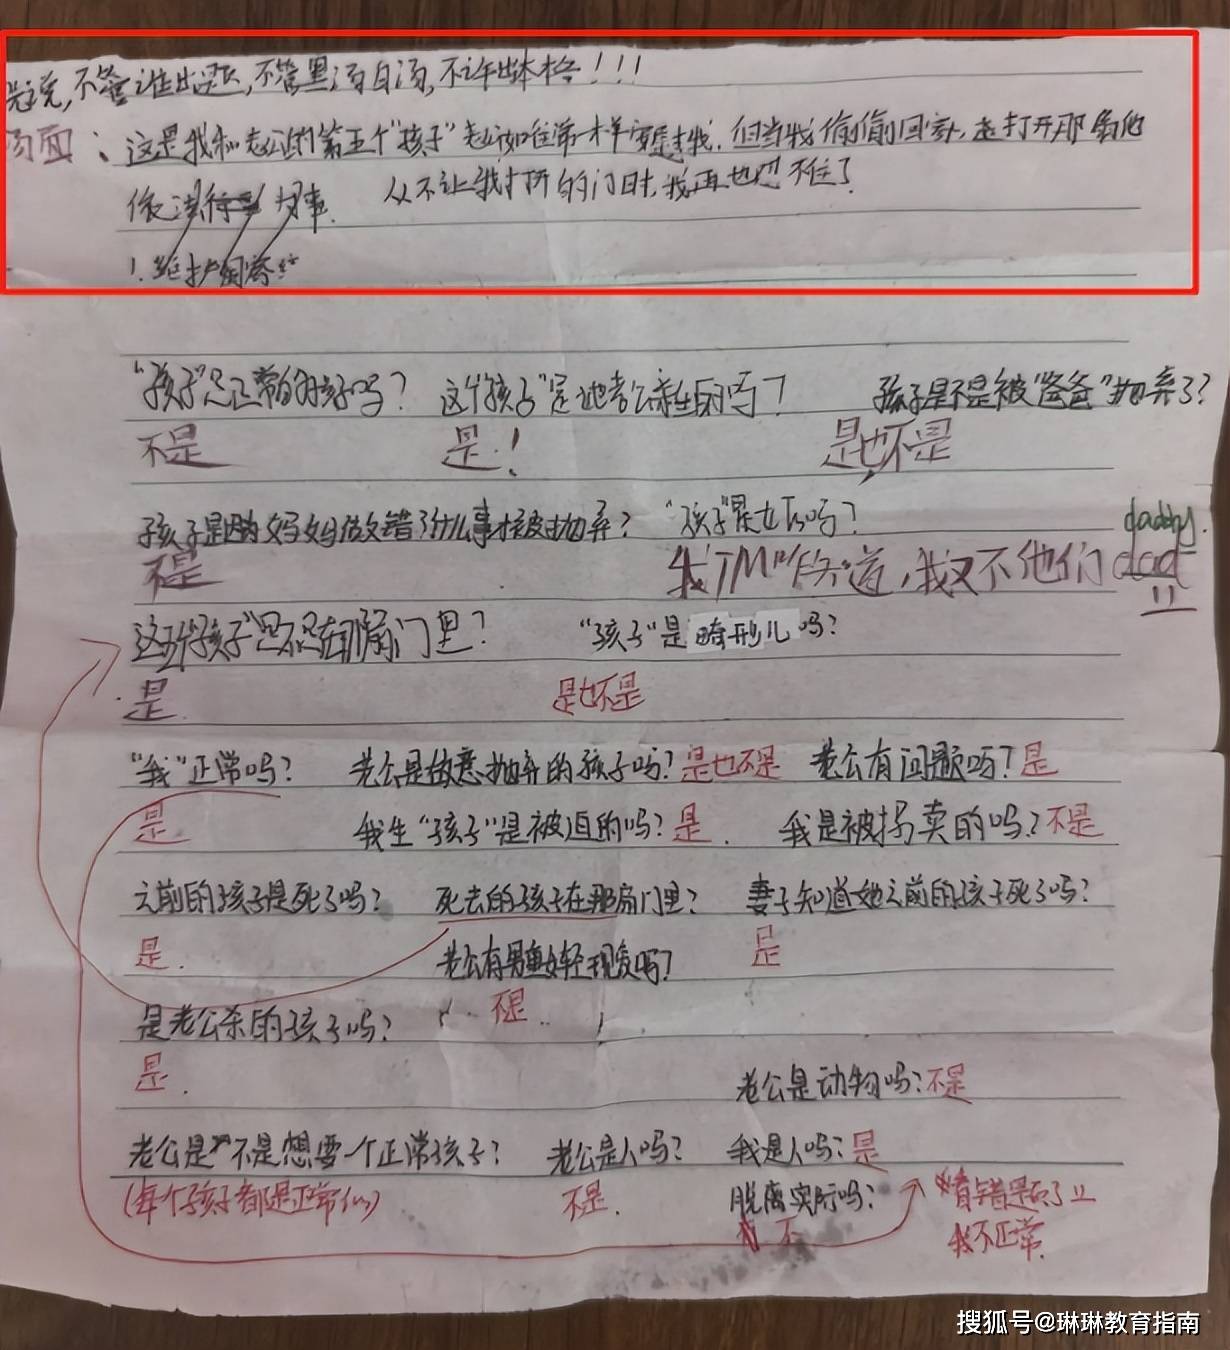 先说,不管谁出题,不管黑汤白汤,不许出本格!!!
汤面:这是我和老公的第五个"孩子"老公如往常一样安慰我.但当我偷偷回家,去打开那扇他
从不让我打开的门时,我再也忍不住了
"孩子"是正常的孩子吗? 这个"孩子"是她老公亲生的吗? 孩子是不是被"爸爸"抛弃了?
不是 是.! 是也不是
孩子是因为妈妈做错了什么事才被抛弃? "孩子"是女的吗?
不是 我TM咋知道,我又不他们dad daddy.
这5个"孩子"是不是在那扇门里? "孩子"是畸形儿吗?
是. 是也不是
"我"正常吗? 老公是故意抛弃的孩子吗?是也不是 老公有问题吗?是
是 我生"孩子"是被迫的吗?是. 我是被拐卖的吗?不是
之前的孩子是死了吗? 死去的孩子在那扇门里? 妻子知道她之前的孩子死了吗?
是. 老公有重男轻女现象吗? 是
是老公杀的孩子吗? 不是
是. 老公是动物吗?不是
老公是不是想要一个正常孩子? 老公是人吗? 我是人吗?是
(每个孩子都是正常的) 不是. 脱离实际吗? 看错题了
不 我不正常.
搜狐号@琳琳教育指南